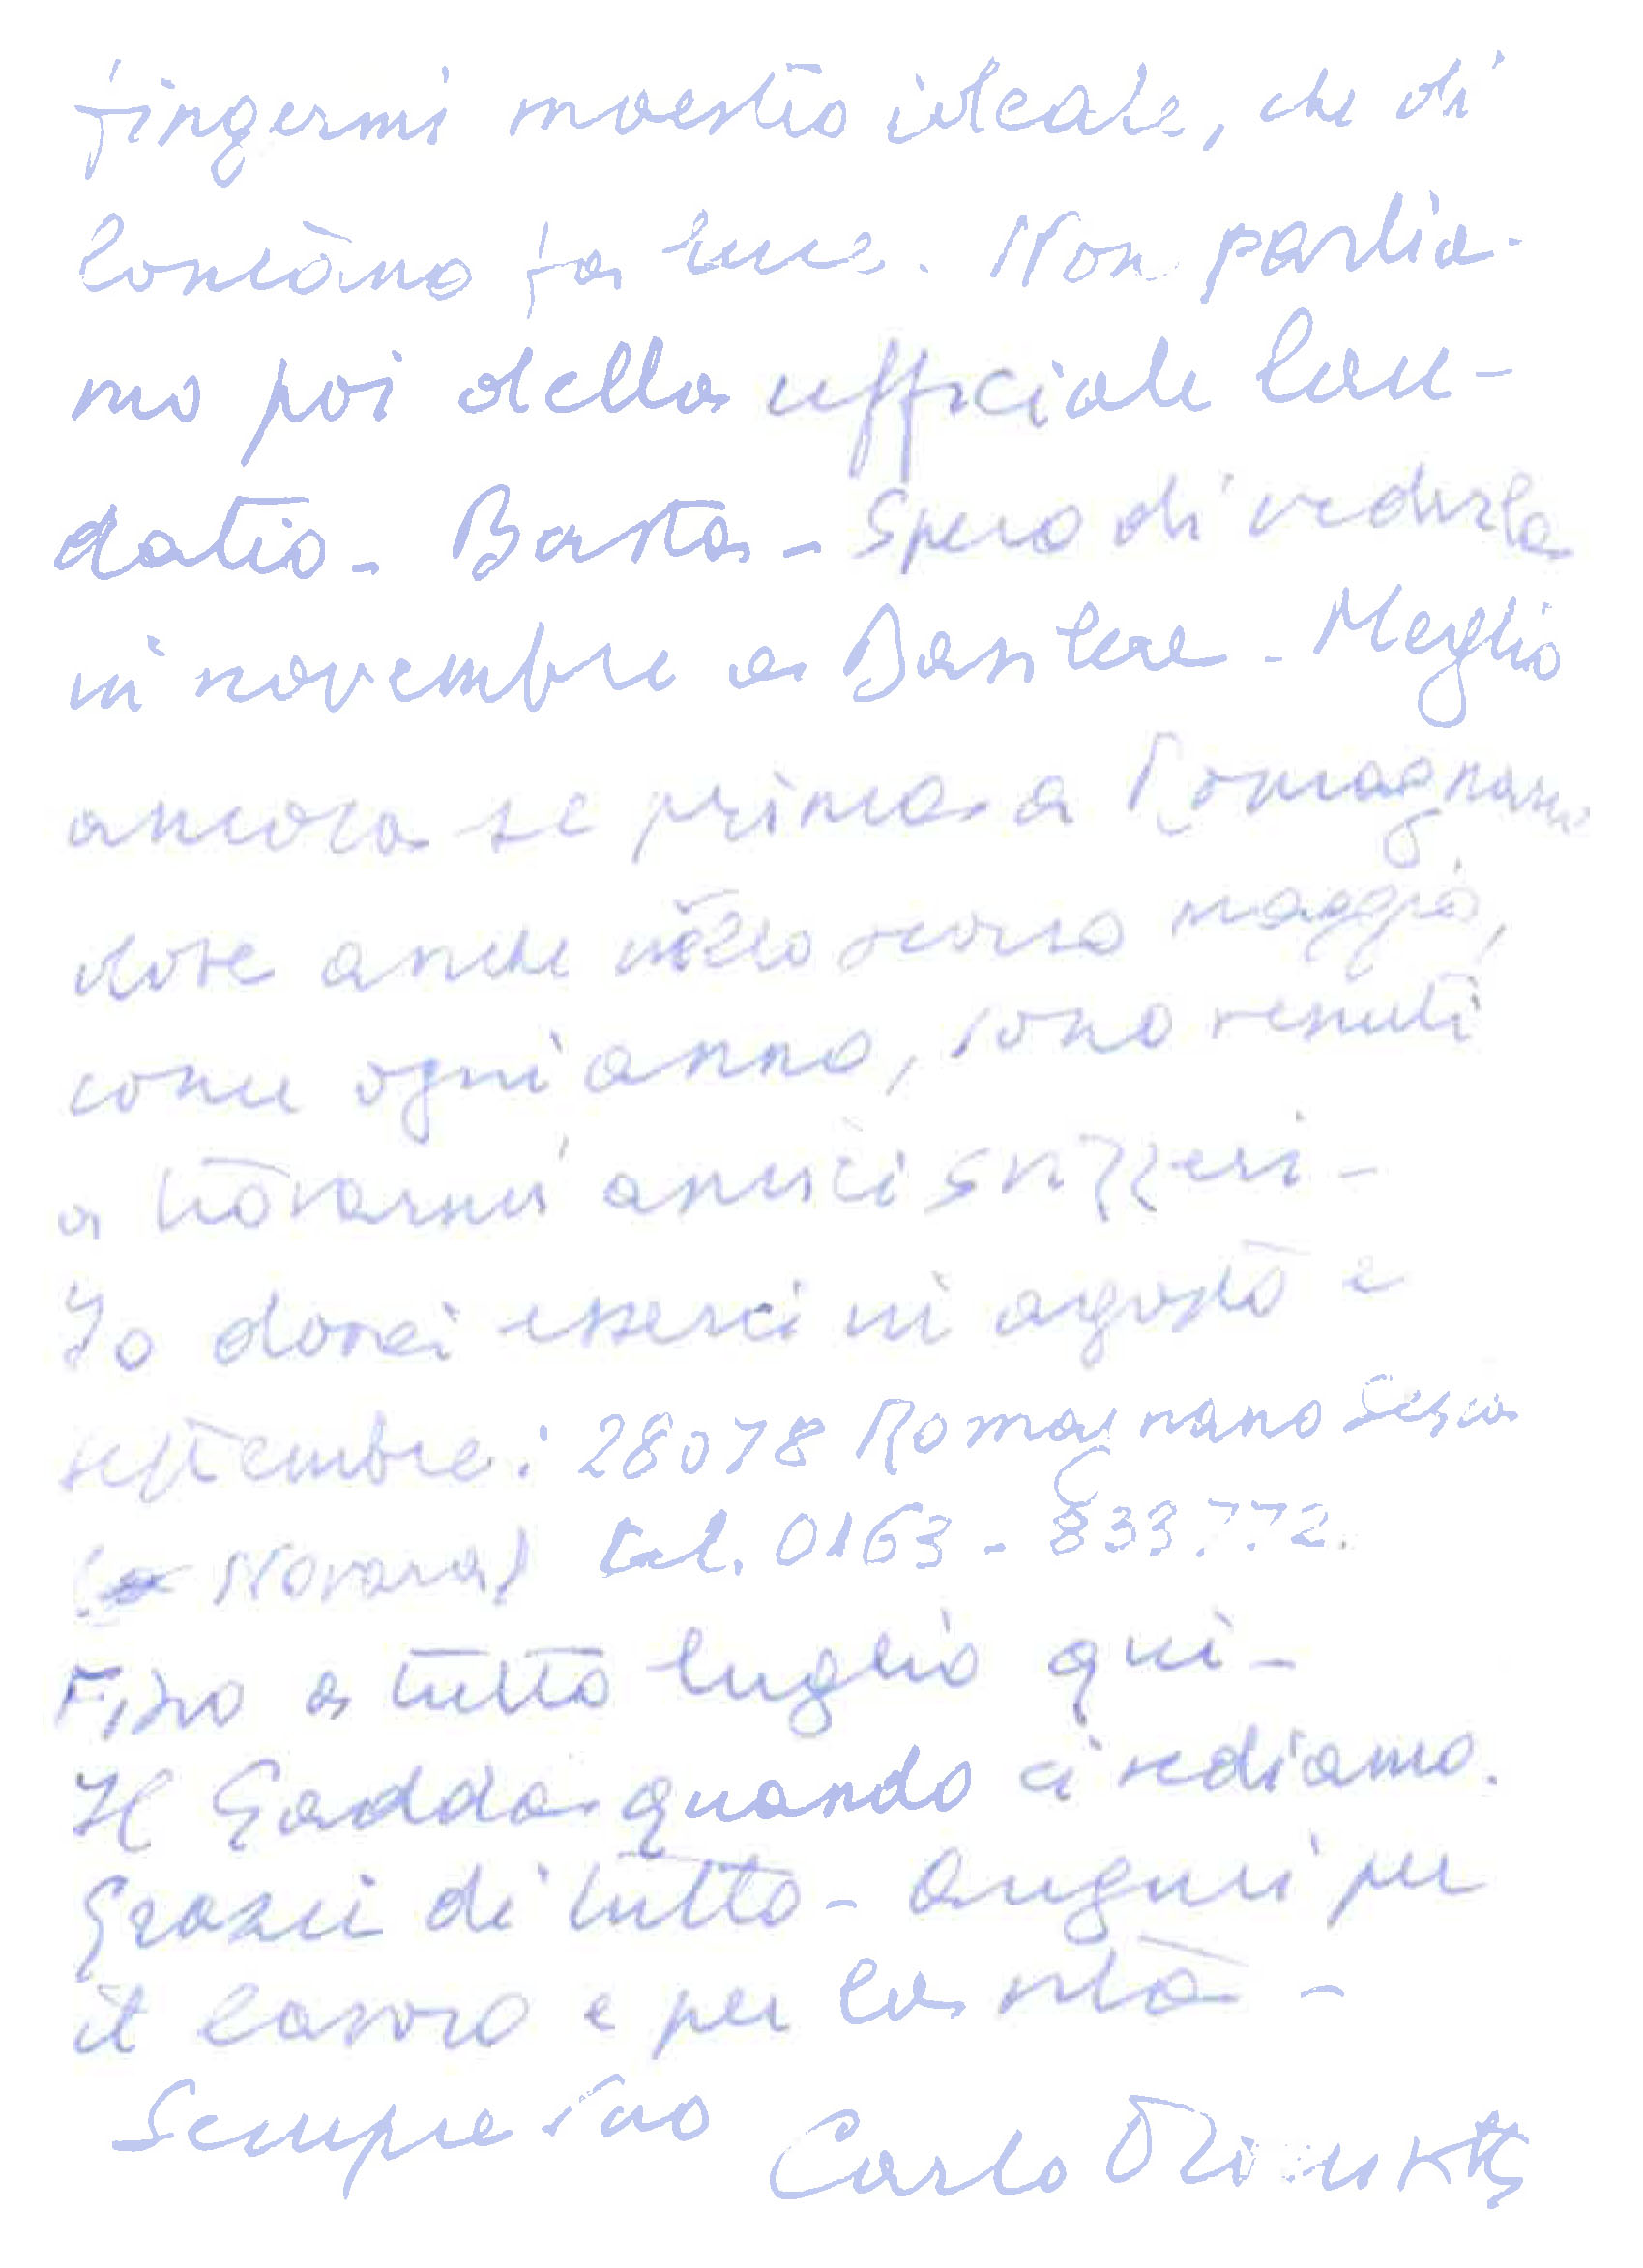 fingermi maestro ideale, che di
lontano fa luce. Non parlia-
mo poi della ufficiale lau-
datio - Basta - Spero di vederla
in novembre a Basilea - Meglio
ancora se prima a Romagnano
dove anche nello scorso maggio,
come ogni anno, sono venuti
a trovarmi amici svizzeri -
Io dovrei esserci in agosto e
settembre: 28078 Romagnano Sesia
(Novara) tel. 0163 - 833.772.
Fino a tutto luglio qui -
Il Gadda quando ci vediamo.
Grazie di tutto - auguri per
il lavoro e per la vita -
Sempre Suo Carlo Dionisotti